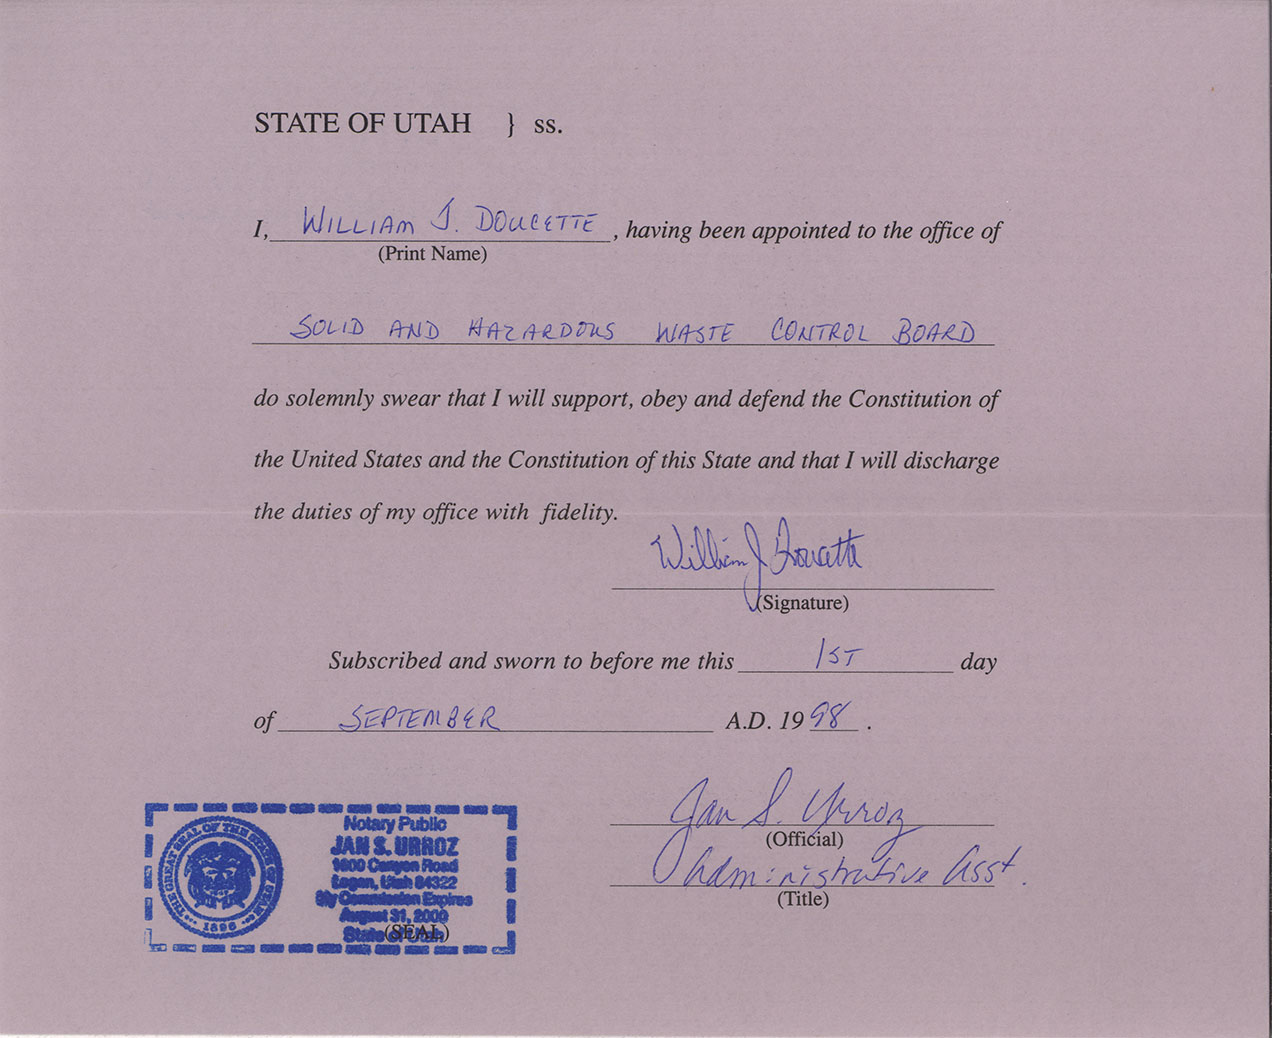 STATE OF UTAH } ss.
I, WILLIAM J. DOUCETTE, having been appointed to the office of
(Print Name)
SOLID AND HAZARDOUS WASTE CONTROL BOARD
do solemnly swear that I will support, obey and defend the Constitution of
the United States and the Constitution of this State and that I will discharge
the duties of my office with fidelity.
William J Doucette
(Signature)
Subscribed and sworn to before me this 1ST day
of SEPTEMBER A.D. 1998.
Jan S. Urroz
(Official)
Administrative Asst.
(Title)
THE GREAT SEAL OF THE STATE OF UTAH
1896
Notary Public
JAN S. URROZ
1600 Canyon Road
Logan, Utah 84322
My Commission Expires
August 31, 2000
State of Utah
(SEAL)